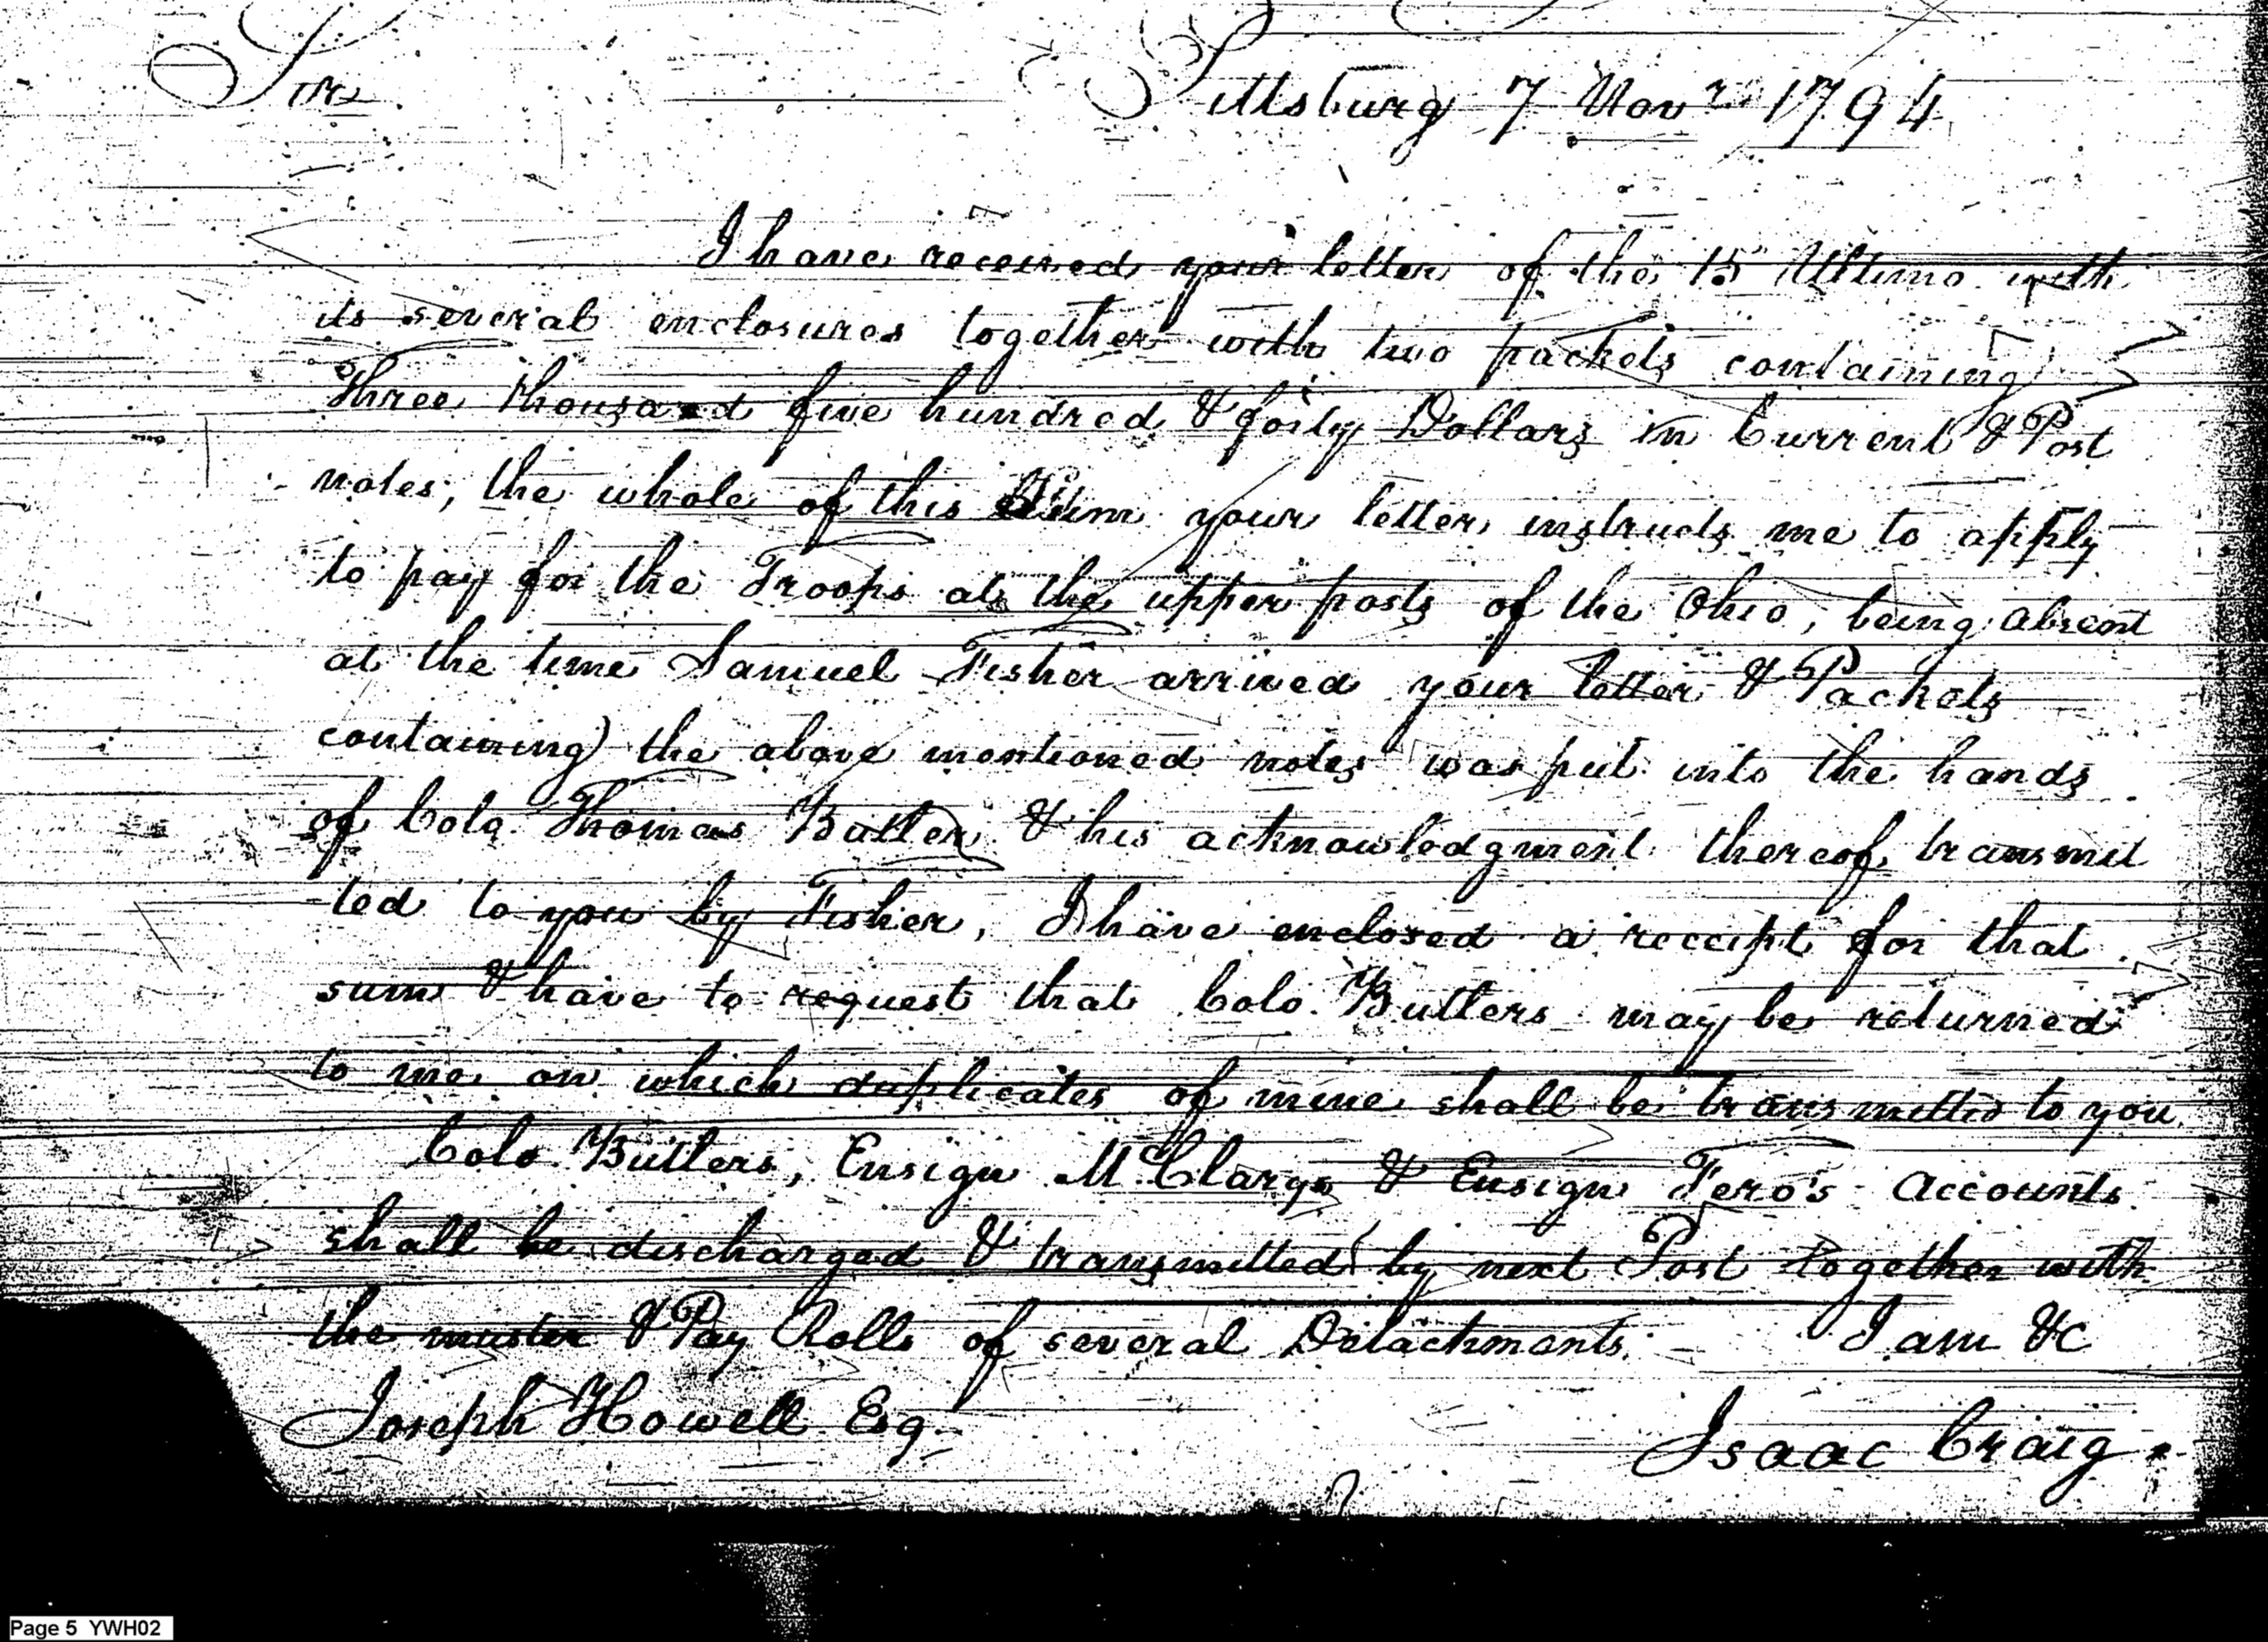 Sir
Pittsburg 7 Novr. 1794
I have received your letter of the 15 Ultimo with
its several enclosures together with two packets containing
Three thousand five hundred & forty Dollars in Current & Post
notes, the whole of this Sum your letter instructs me to apply
to pay for the Troops at the upper posts of the Ohio, being absent
at the time Samuel Fisher arrived your letter & Packets
containing the above mentioned notes was put into the hands
of Colo. Thomas Butler & his acknowledgment thereof transmit
ted to you by Fisher, I have enclosed a receipt for that
sum & have to request that Colo. Butlers may be returned
to me on which duplicates of mine shall be transmitted to you.
Colo. Butlers, Ensign McClarys & Ensign Fero's Accounts
shall be discharged & transmitted by next Post together with
the muster & Pay Rolls of several Detachments. I am &c
Joseph Howell Esq.
Isaac Craig
Page 5 YWH02